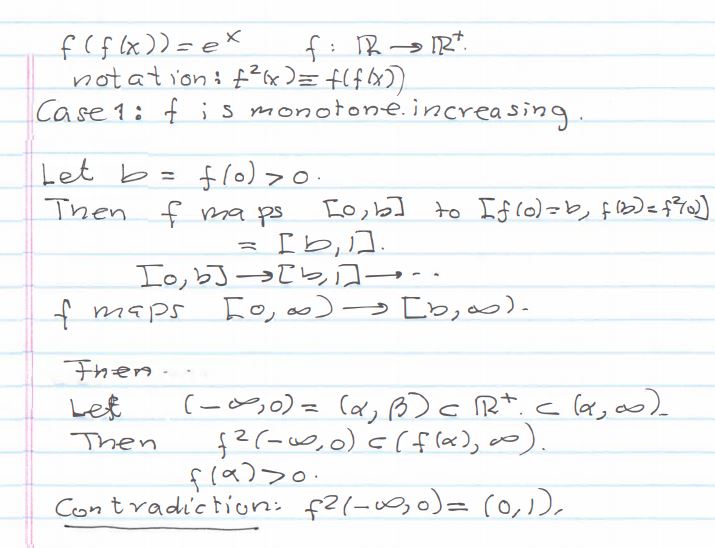 f(f(x)) = e^x f: ℝ → ℝ⁺.
notation: f²(x) ≡ f(f(x))
Case 1: f is monotone.increasing.
Let b = f(0) > 0.
Then f maps [0,b] to [f(0)=b, f(b)=f²(0)]
= [b,1].
[0,b] → [b,1] → ..
f maps [0,∞) → [b,∞).
Then..
Let (-∞,0) = (α,β) ⊂ ℝ⁺. ⊂ (α,∞)
Then f²(-∞,0) ⊂ (f(α),∞).
f(α) > 0.
Contradiction: f²(-∞,0) = (0,1).